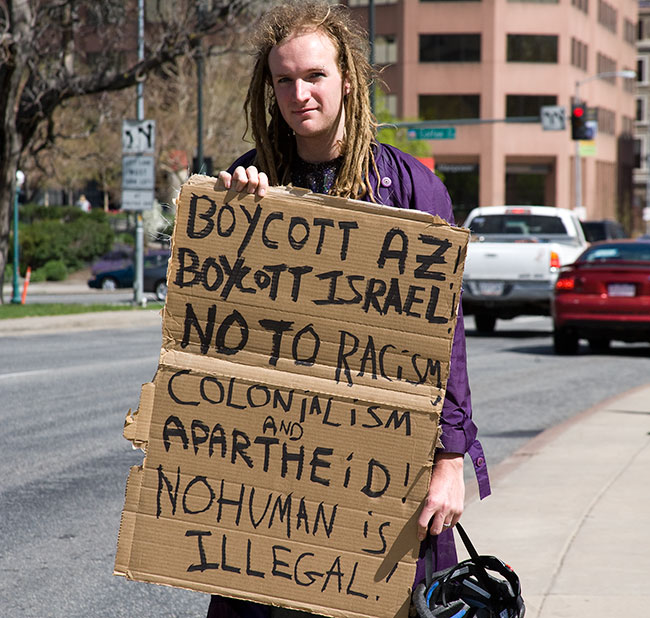 BOYCOTT AZ!
BOYCOTT ISRAEL!
NO TO RACISM,
COLONIALISM
AND
APARTHEID!
NO HUMAN iS
ILLEGAL!